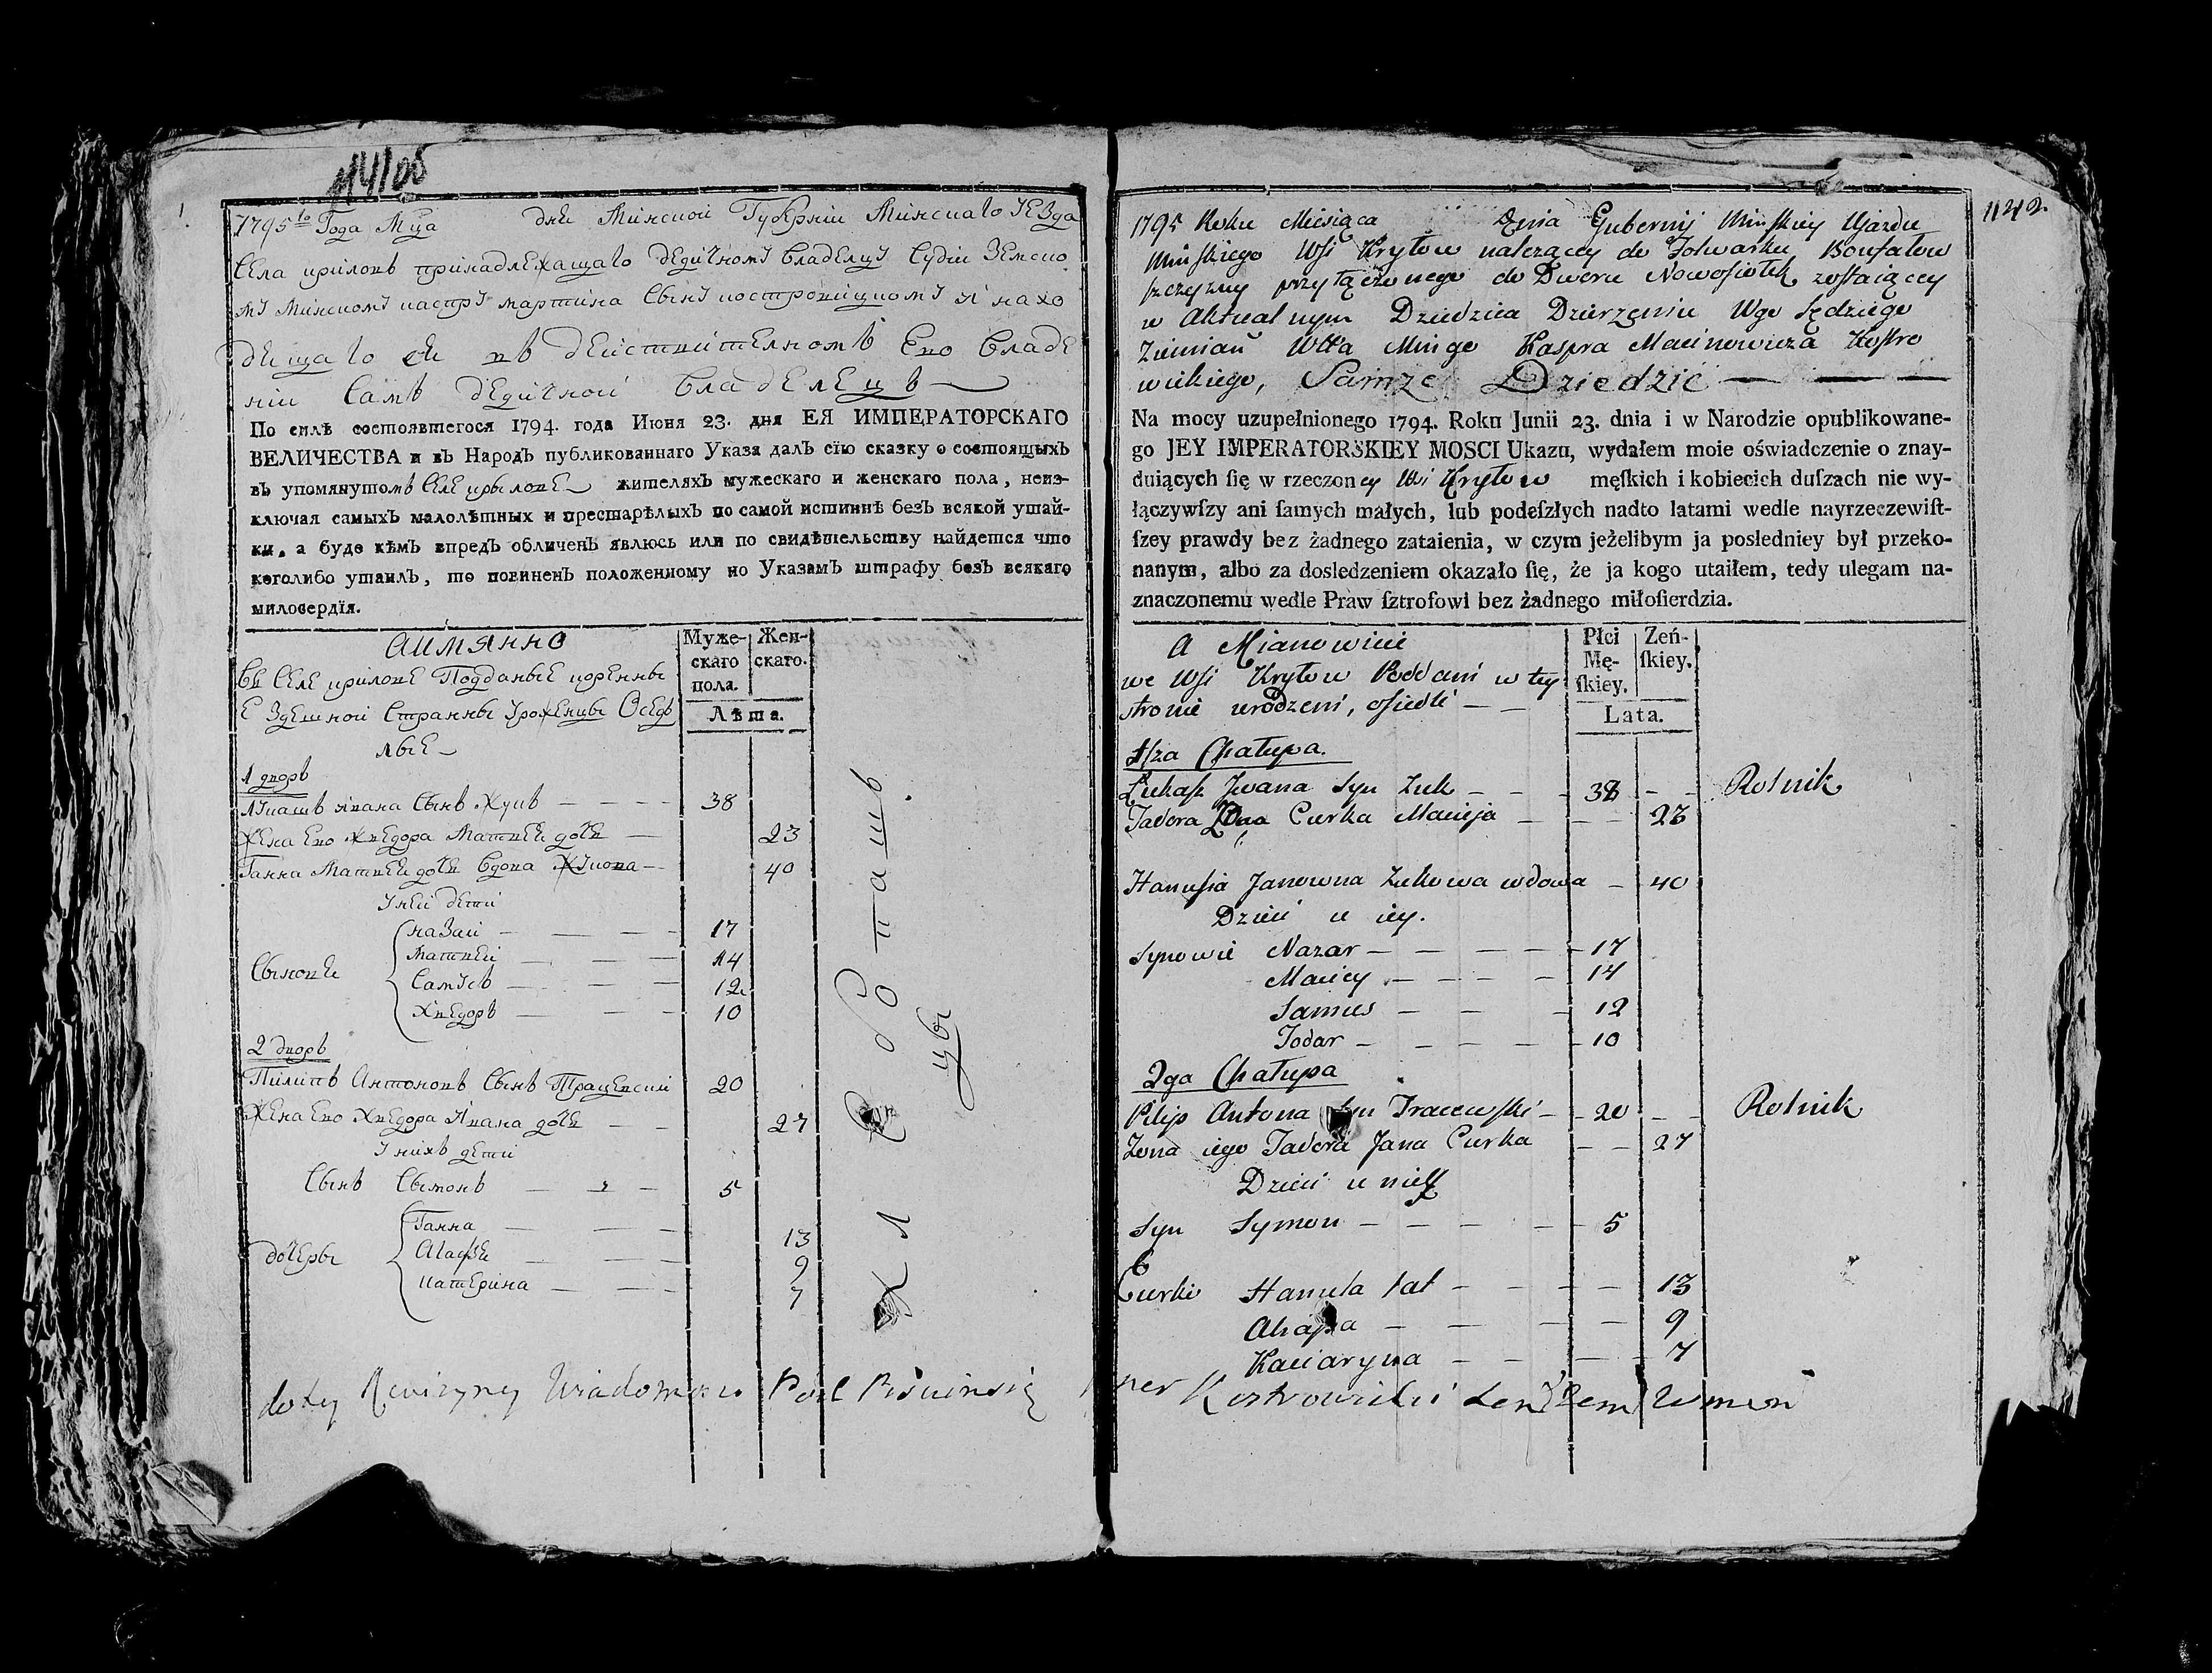 1795го Года Мца дня Минской Губерніи Минскаго уезда
Села крылов принадлежащаго дедичному владелцу Судіи Земско
му Минскому каспру мартина сыну костровицкому и нахо
дещаго се въ действителномъ Ево владе
ніи Самъ дедичной владелецъ
По силѣ состоявшегося 1794. года Июня 23. дня ЕЯ ИМПЕРАТОРСКАГО
ВЕЛИЧЕСТВА и въ Народъ публикованнаго Указа далъ сїю сказку о состоящыхъ
въ упомянутомъ Селе крылове жителяхъ мужескаго и женскаго пола, неиз-
ключая самыхъ малолѣтныхъ и престарѣлыхъ по самой истиннѣ безъ всякой утай-
ки, а буде кѣмъ впредъ обличенъ явлюсь или по свидѣтельству найдется что
коголибо утаилъ, то повиненъ положенному по Указамъ штрафу безъ всякаго
милосердїя.
аимянно
Въ Селе крилове Подданые коренны
Е Здешной Странны урожЕнцы Осед
лые
Муже-
скаго
пола.
Жен-
скаго.
Лѣта.
1 дворъ
лукашъ ивана Сынъ Жукъ 38
Жена Ево Хведора Матвей дочь 23
Ганна Матвей дочь вдова Жукова 40
У ней дети
Сыновьи
назай 17
Матвей 14
Самусь 12
Хведоръ 10
2 дворъ
Пилипъ Антоновъ Сынъ Трацевский 20
Жена Ево Хведора Ивана дочь 27
У нихъ дети
Сынъ Сымонъ 5
дочеры
Ганна 13
Агафья 9
катерина 7
Хлѣбопашъ
цы
do tey Rewizyney Wiadomosci
1142
1795 Roku Miesiąca Dnia Gubernij Mińskiey Ujazdu
Mińskiego Wsi Kryłow należącey do Folwarku Bonfałow
szczyzny przyłączonego do Dworu Nowosiołek zostaiącey
w Aktualnym Dziedzica Dzierzeniu Wgo Sędziego
Ziemiań Wttа Mingo Kaspra Macinowicza Kostro
wickiego, Samże Dziedzic
Na mocy uzupełnionego 1794. Roku Junii 23. dnia i w Narodzie opublikowane-
go JEY IMPERATORSKIEY MOSCI Ukazu, wydałem moie oświadczenie o znay-
duiących się w rzeczoney Wsi Kryłow męskich i kobiecich duszach nie wy-
łączywszy ani samych małych, lub podeszłych nadto latami wedle nayrzeczewist-
szey prawdy bez żadnego zataienia, w czym jeżelibym ja posledniey był przeko-
nanym, albo za dosledzeniem okazało się, że ja kogo utaiłem, tedy ulegam na-
znaczonemu wedle Praw sztrofowi bez żadnego miłosierdzia.
A Mianowicie
we Wsi Kryłow Poddani w tey
stronie urodzeni, osiedli
Płci
Mę-
skiey.
Zeń-
skiey.
Lata.
1sza Chałupa.
Łukasz Jwana Syn Zuk 38 Rolnik
Tadora Żona Curka Macieja 23
Hanusia Janowna Zukowa wdowa 40
Dzieci u iey.
Synowie Nazar 17
Maciey 14
Samus 12
Todar 10
2ga Chałupa
Pilip Antona Syn Tracewski 20 Rolnik
Zona iego Tadora Jana Curka 27
Dzieci u nich
Syn Symon 5
Curki Hanula lat 13
Ahapa 9
Kaciaryna 7
Kostrowicki